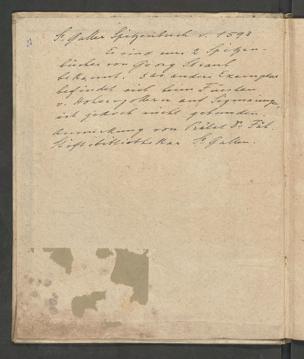 St. Gallen Spitzenbuch v. 1593
Es sind nur 2 Spitzen-
bücher von Georg Straub
bekannt. Das andere Exemplar
befindet sich beim Fürsten
v. Hohenzollern auf Sigmaringen,
ist jedoch nicht gebunden.
Bemerkung von Prälat Dr. Fäh,
Stiftsbibliothekar St. Gallen.